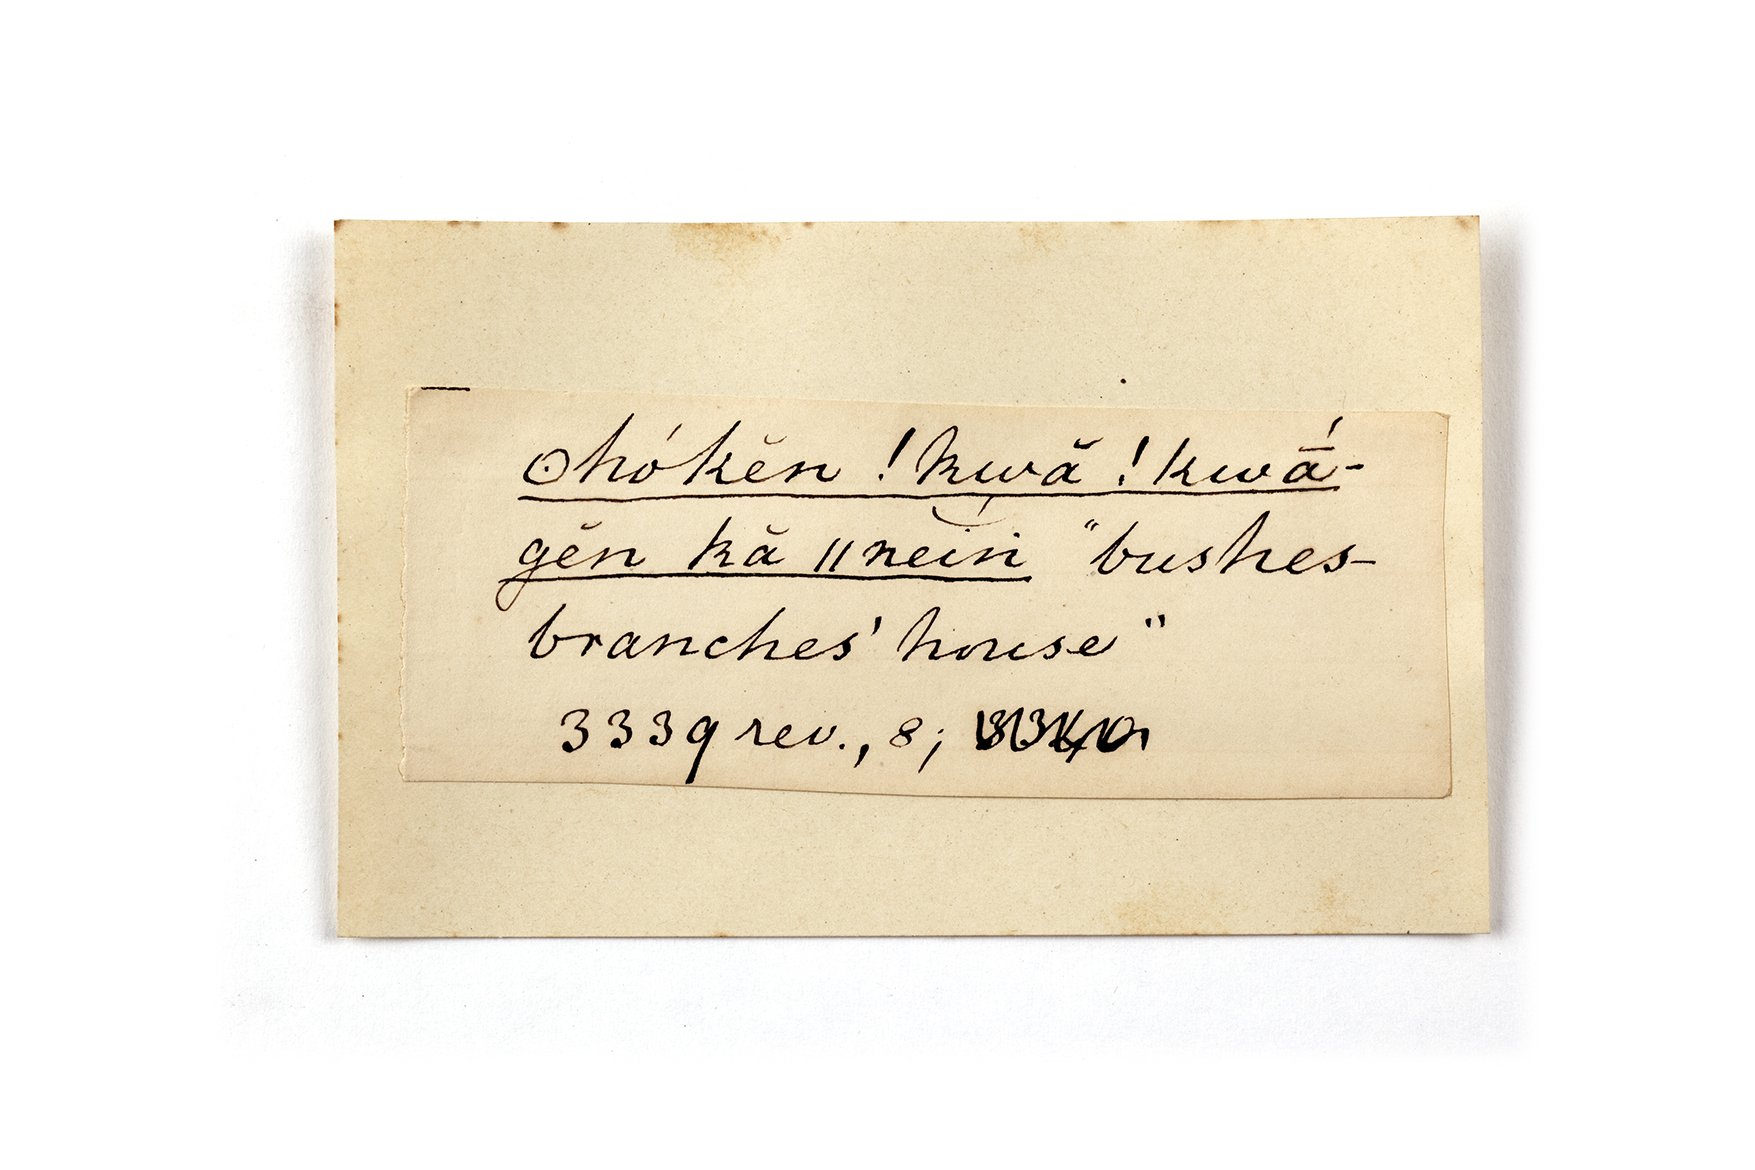 ʘhókĕn !kwă !kwā́-
gĕn kă ǁneiń "bushes-
branches' house"
3339 rev., 8;